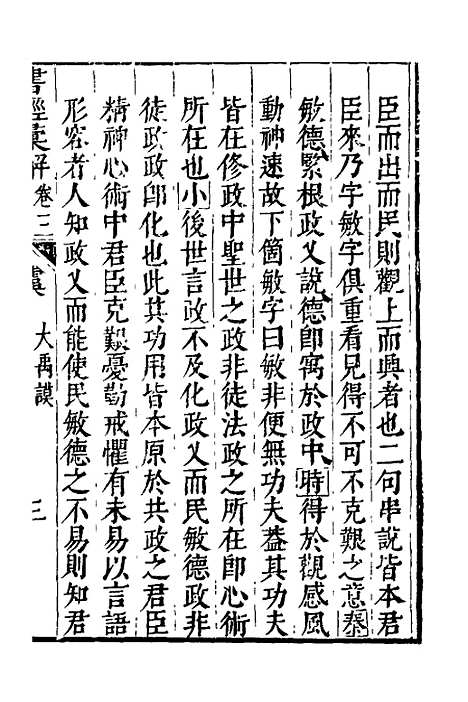 臣而出而民則觀上而興者也二句串說皆本君
臣來乃字敏字俱重看見得不可不克艱之意秦
敏德緊根政乂說德卽寓於政中時得於觀感風
動神速故下箇敏字曰敏非便無功夫葢其功夫
皆在修政中聖世之政非徒法政之所在卽心術
所在也小後世言政不及化政乂而民敏德政非
徒政政卽化也此其功用皆本原於共政之君臣
精神心術中君臣克艱憂勤戒懼有未易以言語
形容者人知政乂而能使民敏德之不易則知君
書經彙解卷三 虞 大禹謨 三